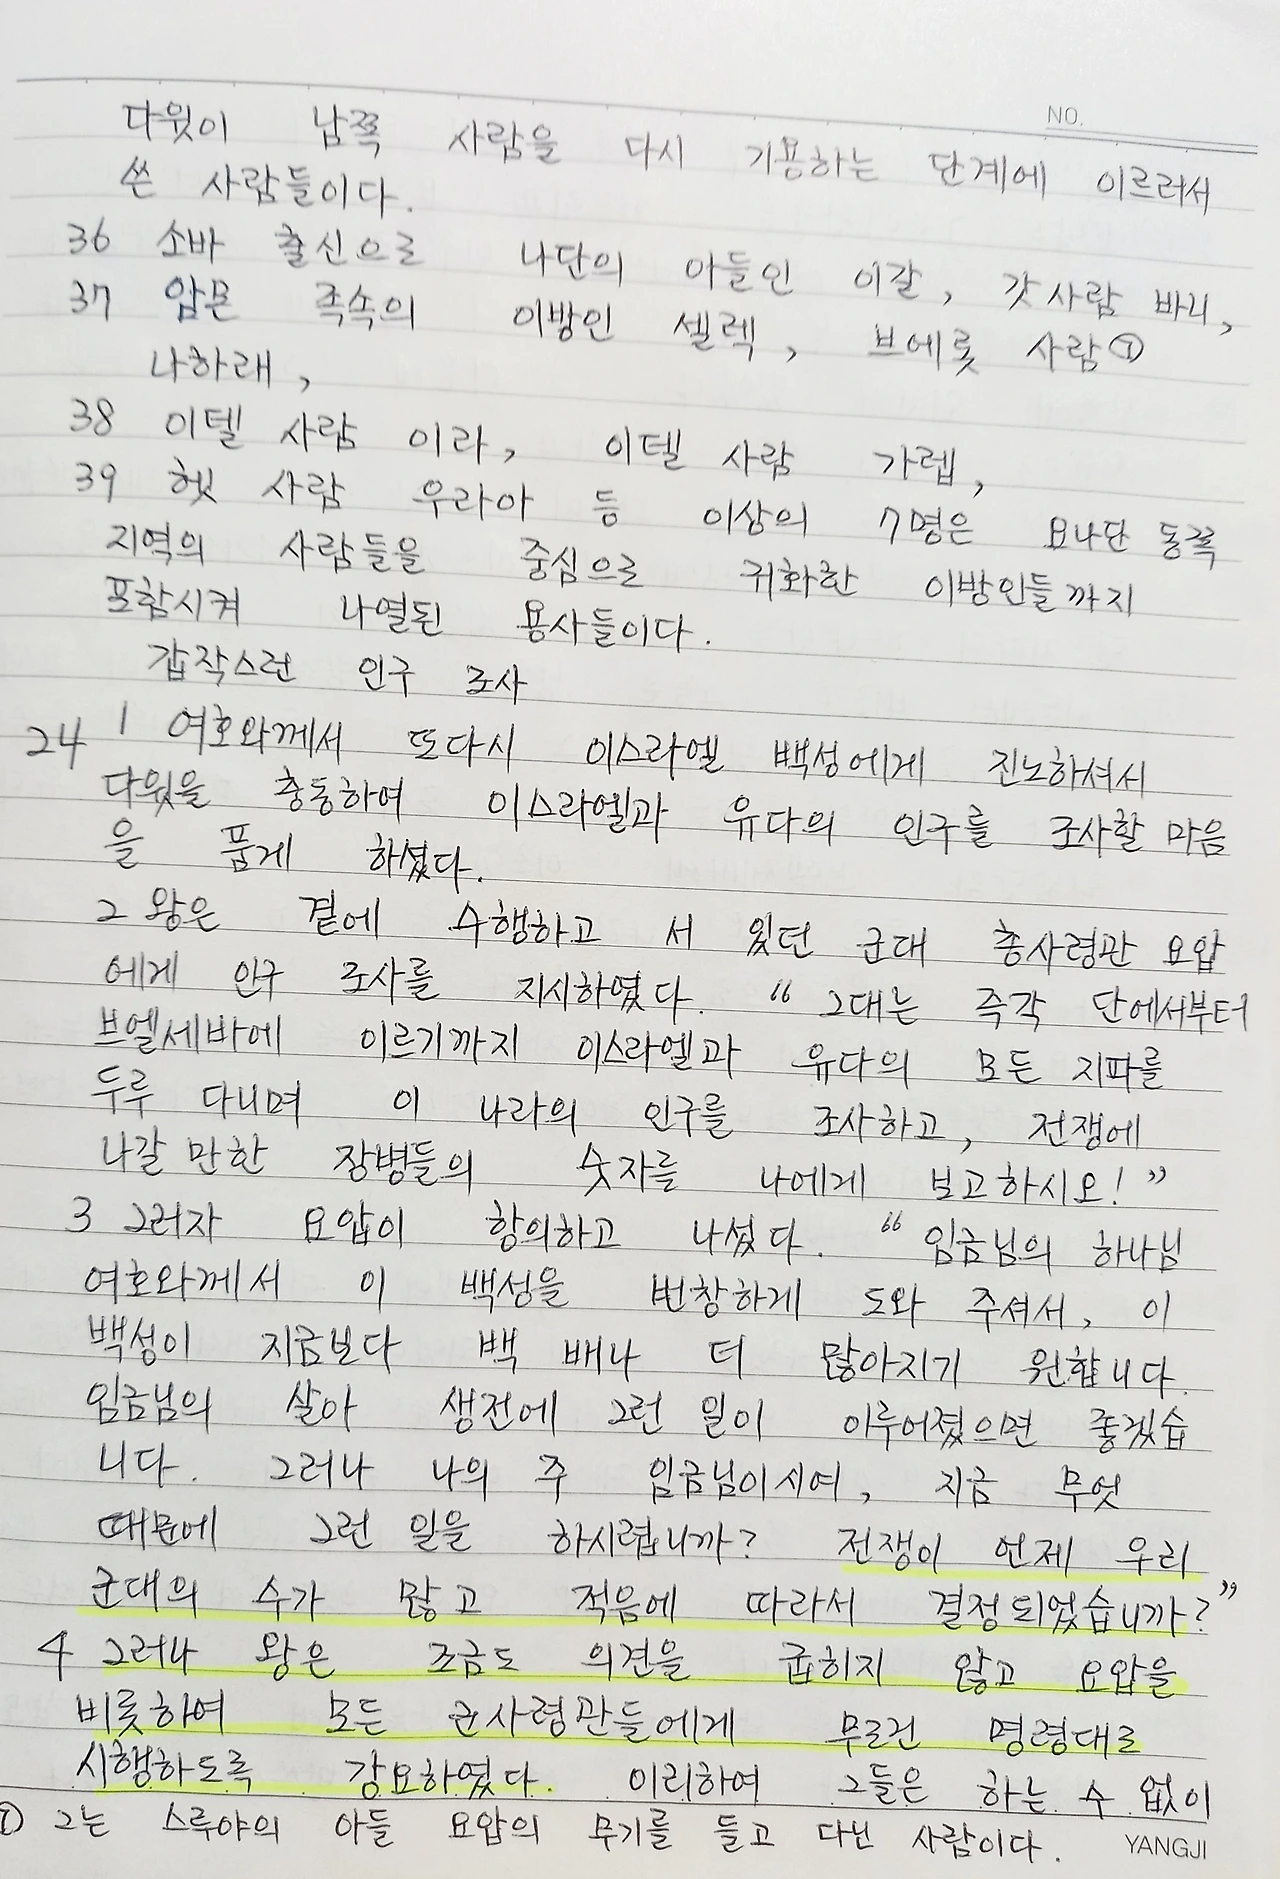 NO.
다윗이 남쪽 사람을 다시 기용하는 단계에 이르러서
쓴 사람들이다.
36 소바 출신으로 나단의 아들인 이갈, 갓사람 바니,
37 암몬 족속의 이방인 셀렉, 브에롯 사람①
나하래,
38 이텔 사람 이라, 이델 사람 가렙,
39 헷 사람 우라아 등 이상의 7명은 요나단 동쪽
지역의 사람들을 중심으로 귀화한 이방인들까지
포함시켜 나열된 용사들이다.
갑작스런 인구 조사
24 1 여호와께서 또다시 이스라엘 백성에게 진노하셔서
다윗을 충동하여 이스라엘과 유다의 인구를 조사할 마음
을 품게 하셨다.
2 왕은 곁에 수행하고 서 있던 군대 총사령관 요압
에게 인구 조사를 지시하였다. “그대는 즉각 단에서부터
브엘세바에 이르기까지 이스라엘과 유다의 모든 지파를
두루 다니며 이 나라의 인구를 조사하고, 전쟁에
나갈 만한 장병들의 숫자를 나에게 보고하시오!”
3 그러자 요압이 항의하고 나섰다. “임금님의 하나님
여호와께서 이 백성을 번창하게 도와 주셔서, 이
백성이 지금보다 백 배나 더 많아지기 원합니다.
임금님의 살아 생전에 그런 일이 이루어졌으면 좋겠습
니다. 그러나 나의 주 임금님이시여, 지금 무엇
때문에 그런 일을 하시렵니까? 전쟁이 언제 우리
군대의 수가 많고 적음에 따라서 결정되었습니까?”
4 그러나 왕은 조금도 의견을 굽히지 않고 요압을
비롯하여 모든 군사령관들에게 무르건 명령대로
시행하도록 강요하였다. 이리하여 그들은 하는 수 없이
① 그는 스루야의 아들 요압의 무기를 들고 다닌 사람이다.
YANGJI